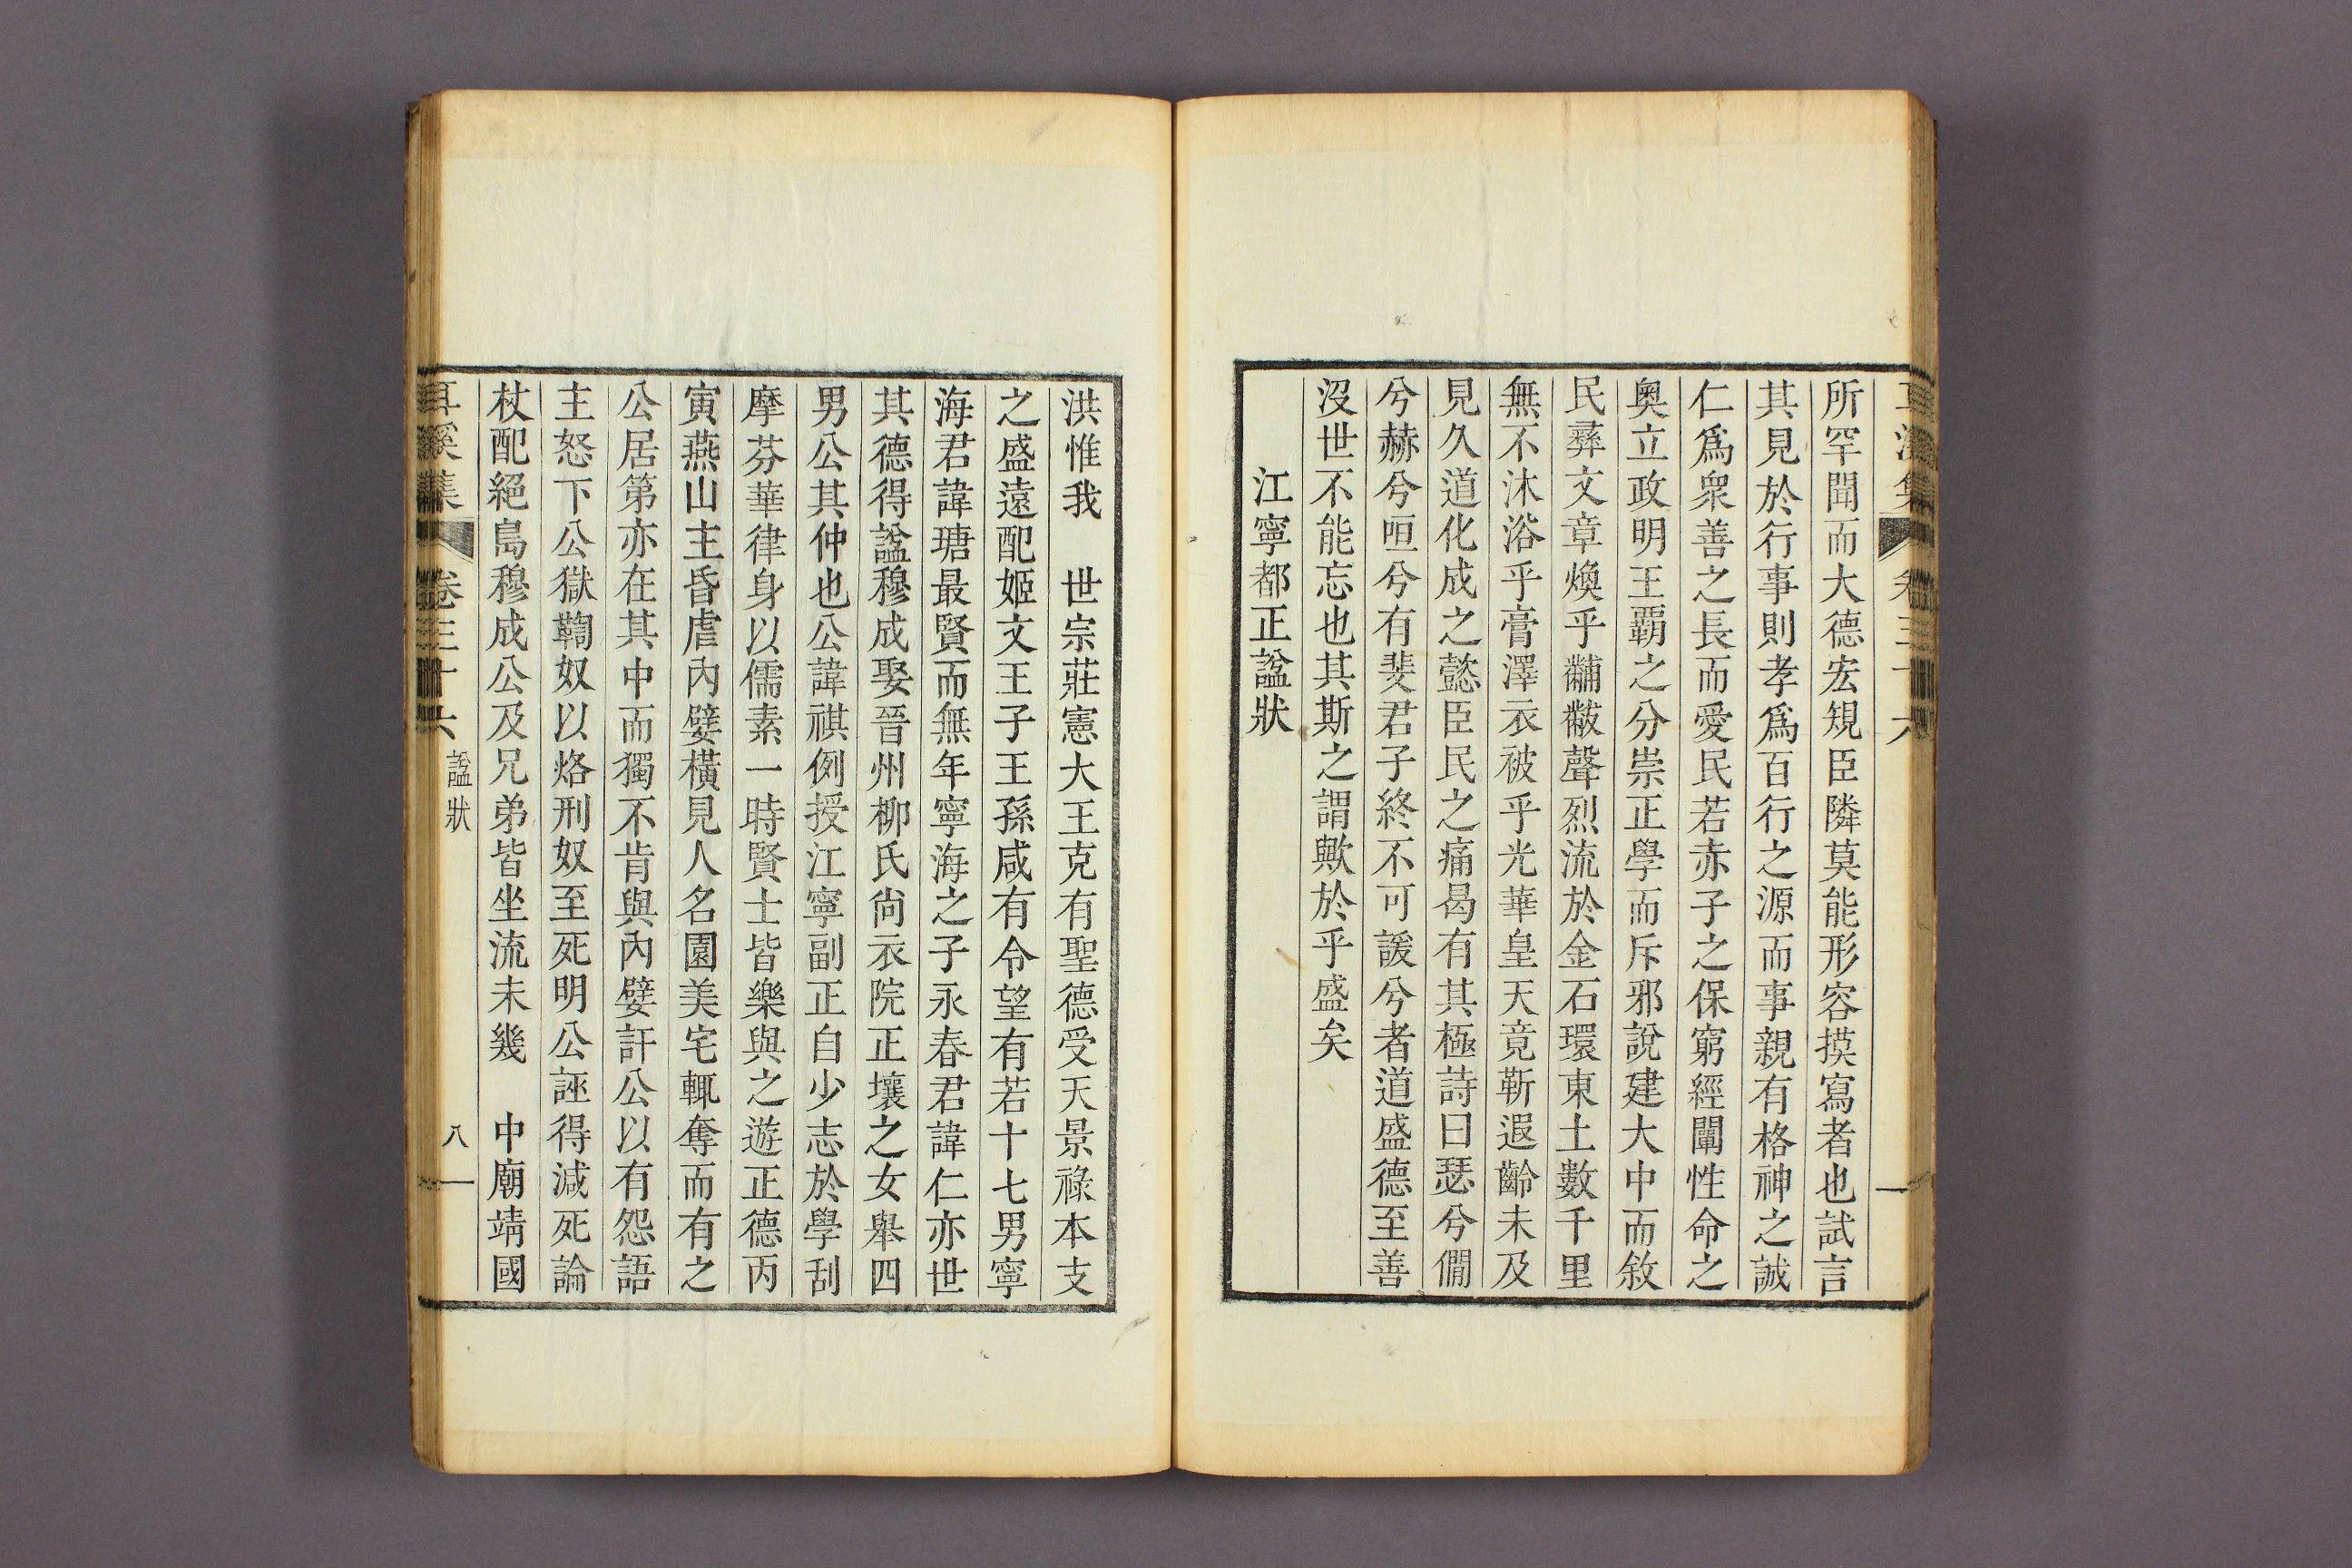 耳溪集 卷三十六
所罕聞而大德宏規臣隣莫能形容摸寫者也試言
其見於行事則孝爲百行之源而事親有格神之誠
仁爲衆善之長而愛民若赤子之保窮經闡性命之
奧立政明王覇之分崇正學而斥邪說建大中而敘
民彛文章煥乎黼黻聲烈流於金石環東土數千里
無不沐浴乎膏澤衣被乎光華皇天竟靳遐齡未及
見久道化成之懿臣民之痛曷有其極詩曰瑟兮僩
兮赫兮咺兮有斐君子終不可諼兮者道盛德至善
沒世不能忘也其斯之謂歟於乎盛矣
江寧都正諡狀
洪惟我 世宗莊憲大王克有聖德受天景祿本支
之盛遠配姬文王子王孫咸有令望有若十七男寧
海君諱瑭最賢而無年寧海之子永春君諱仁亦世
其德得諡穆成娶晉州柳氏尙衣院正壤之女舉四
男公其仲也公諱祺例授江寧副正自少志於學刮
摩芬華律身以儒素一時賢士皆樂與之遊正德丙
寅燕山主昏虐內嬖橫見人名園美宅輒奪而有之
公居第亦在其中而獨不肯與內嬖訐公以有怨語
主怒下公獄鞫奴以烙刑奴至死明公誣得減死論
杖配絕島穆成公及兄弟皆坐流未幾 中廟靖國
耳溪集 卷三十六 諡狀 八